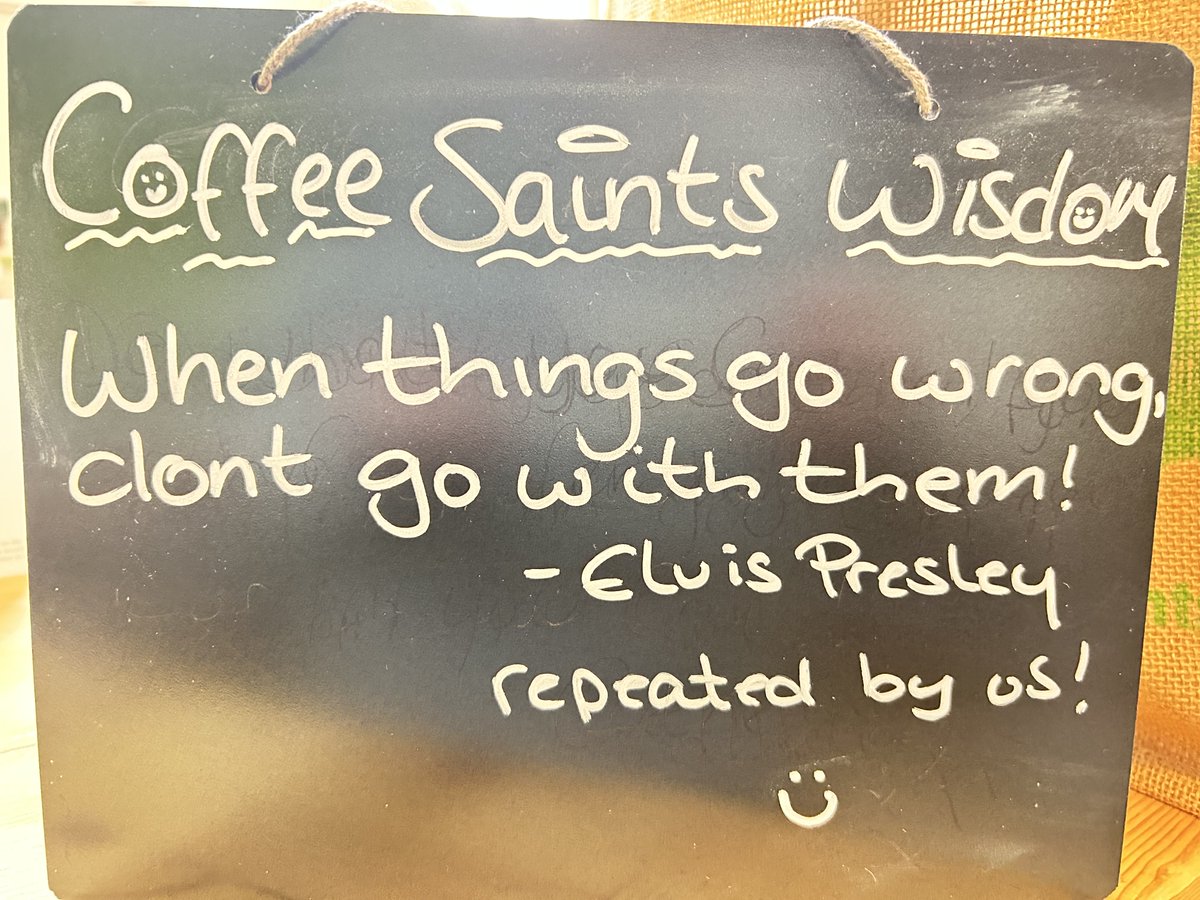 Coffee Saints Wisdom
When things go wrong,
dont go with them!
- Elvis Presley
repeated by us!